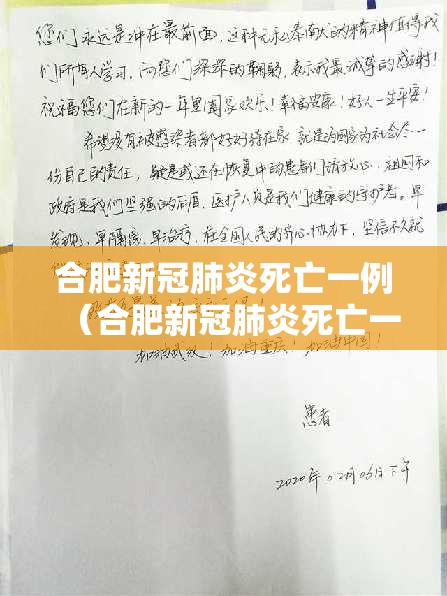 您们永远是冲在最前面，这种无私奉献的精神值得我
们所有人学习，向您们深深的鞠躬，表示我最诚挚的感谢！
祝福您们在新的一年里阖家欢乐！幸福安康！好人一生平安！
希望没有被感染者都好好待在家 就是为国家为社会尽一
份自己的责任，疑是或还在恢复中的患者们请放心，祖国和
政府是我们坚强的后盾，医护人员是我们健康的守护者。早
发现，早隔离，早治疗，在全国人民的齐心协力下，坚信不久就
合肥新冠肺炎死亡一例
（合肥新冠肺炎死亡一
加油武汉！加油重庆！加油中国！
患者
2020年02月03日下午